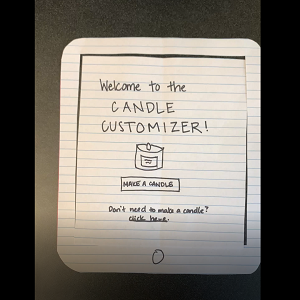 Welcome to the
CANDLE
CUSTOMIZER!
MAKE A CANDLE
Don't need to make a candle?
click here.